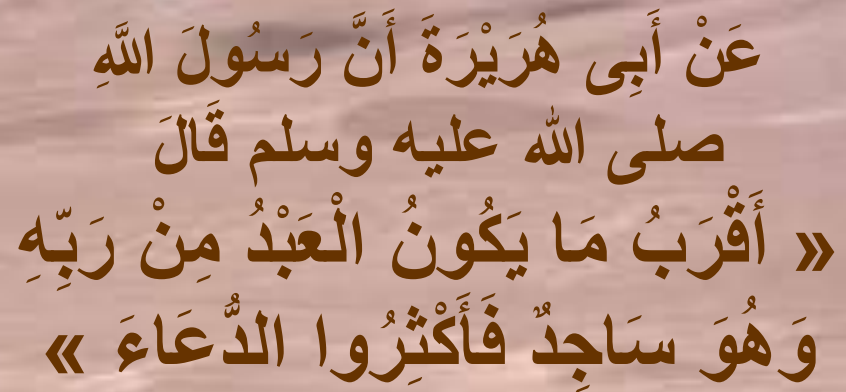 عَنْ أَبِى هُرَيْرَةَ أَنَّ رَسُولَ اللَّهِ
صلى الله عليه وسلم قَالَ
« أَقْرَبُ مَا يَكُونُ الْعَبْدُ مِنْ رَبِّهِ
وَهُوَ سَاجِدٌ فَأَكْثِرُوا الدُّعَاءَ »